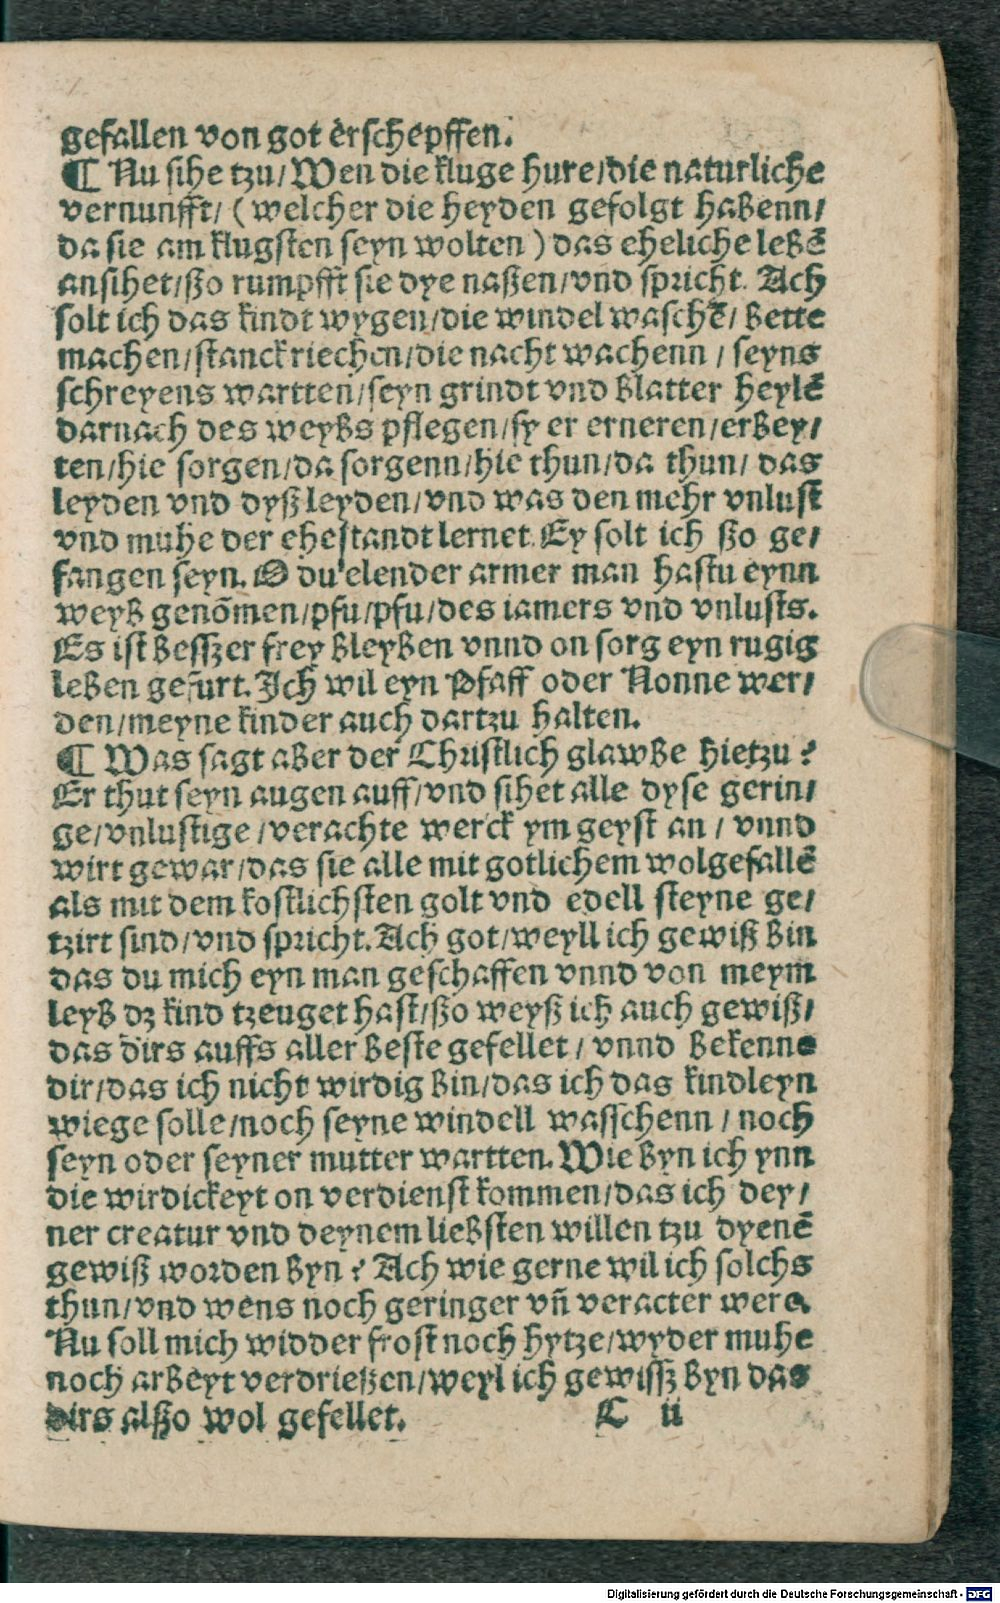 gefallen von got erschepffen.
¶ Nu sihe tzu/ Wen die kluge hure/die naturliche
vernunfft/ (welcher die heyden gefolgt habenn/
da sie am klugsten seyn wolten) das eheliche lebē
ansihet/ßo rumpfft sie dye naßen/vnd spricht. Ach
solt ich das kindt wygen/die windel waschē/ bette
machen/stanck riechen/die nacht wachenn / seyns
schreyens wartten/seyn grindt vnd blatter heylē
darnach des weybs pflegen/sy er erneren/erbey/
ten/hie sorgen/da sorgenn/hie thun/da thun/ das
leyden vnd dyß leyden/vnd was den mehr vnlust
vnd muhe der ehestandt lernet. Ey solt ich ßo ge/
fangen seyn. O du elender armer man hastu eynn
weyb genōmen/pfu/pfu/des iamers vnd vnlusts.
Es ist besszer frey bleyben vnnd on sorg eyn rugig
leben gefurt. Ich wil eyn Pfaff oder Nonne wer/
den/meyne kinder auch dartzu halten.
¶ Was sagt aber der Christlich glawbe hietzu?
Er thut seyn augen auff/vnd sihet alle dyse gerin/
ge/vnlustige/verachte werck ym geyst an / vnnd
wirt gewar/das sie alle mit gotlichem wolgefallē
als mit dem kostlichsten golt vnd edell steyne ge/
tzirt sind/vnd spricht. Ach got/weyll ich gewiß bin
das du mich eyn man geschaffen vnnd von meym
leyb dz kind tzeuget hast/ßo weyß ich auch gewiß/
das dirs auffs aller beste gefellet / vnnd bekenne
dir/das ich nicht wirdig bin/das ich das kindleyn
wiege solle/noch seyne windell wasschenn / noch
seyn oder seyner mutter wartten. Wie byn ich ynn
die wirdickeyt on verdienst kommen/das ich dey/
ner creatur vnd deynem liebsten willen tzu dyenē
gewiß worden byn? Ach wie gerne wil ich solchs
thun/vnd wens noch geringer vñ veracter were.
Nu soll mich widder frost noch hytze/wyder muhe
noch arbeyt verdrießen/weyl ich gewissz byn das
dirs alßo wol gefellet. C ii
Digitalisierung gefördert durch die Deutsche Forschungsgemeinschaft - DFG